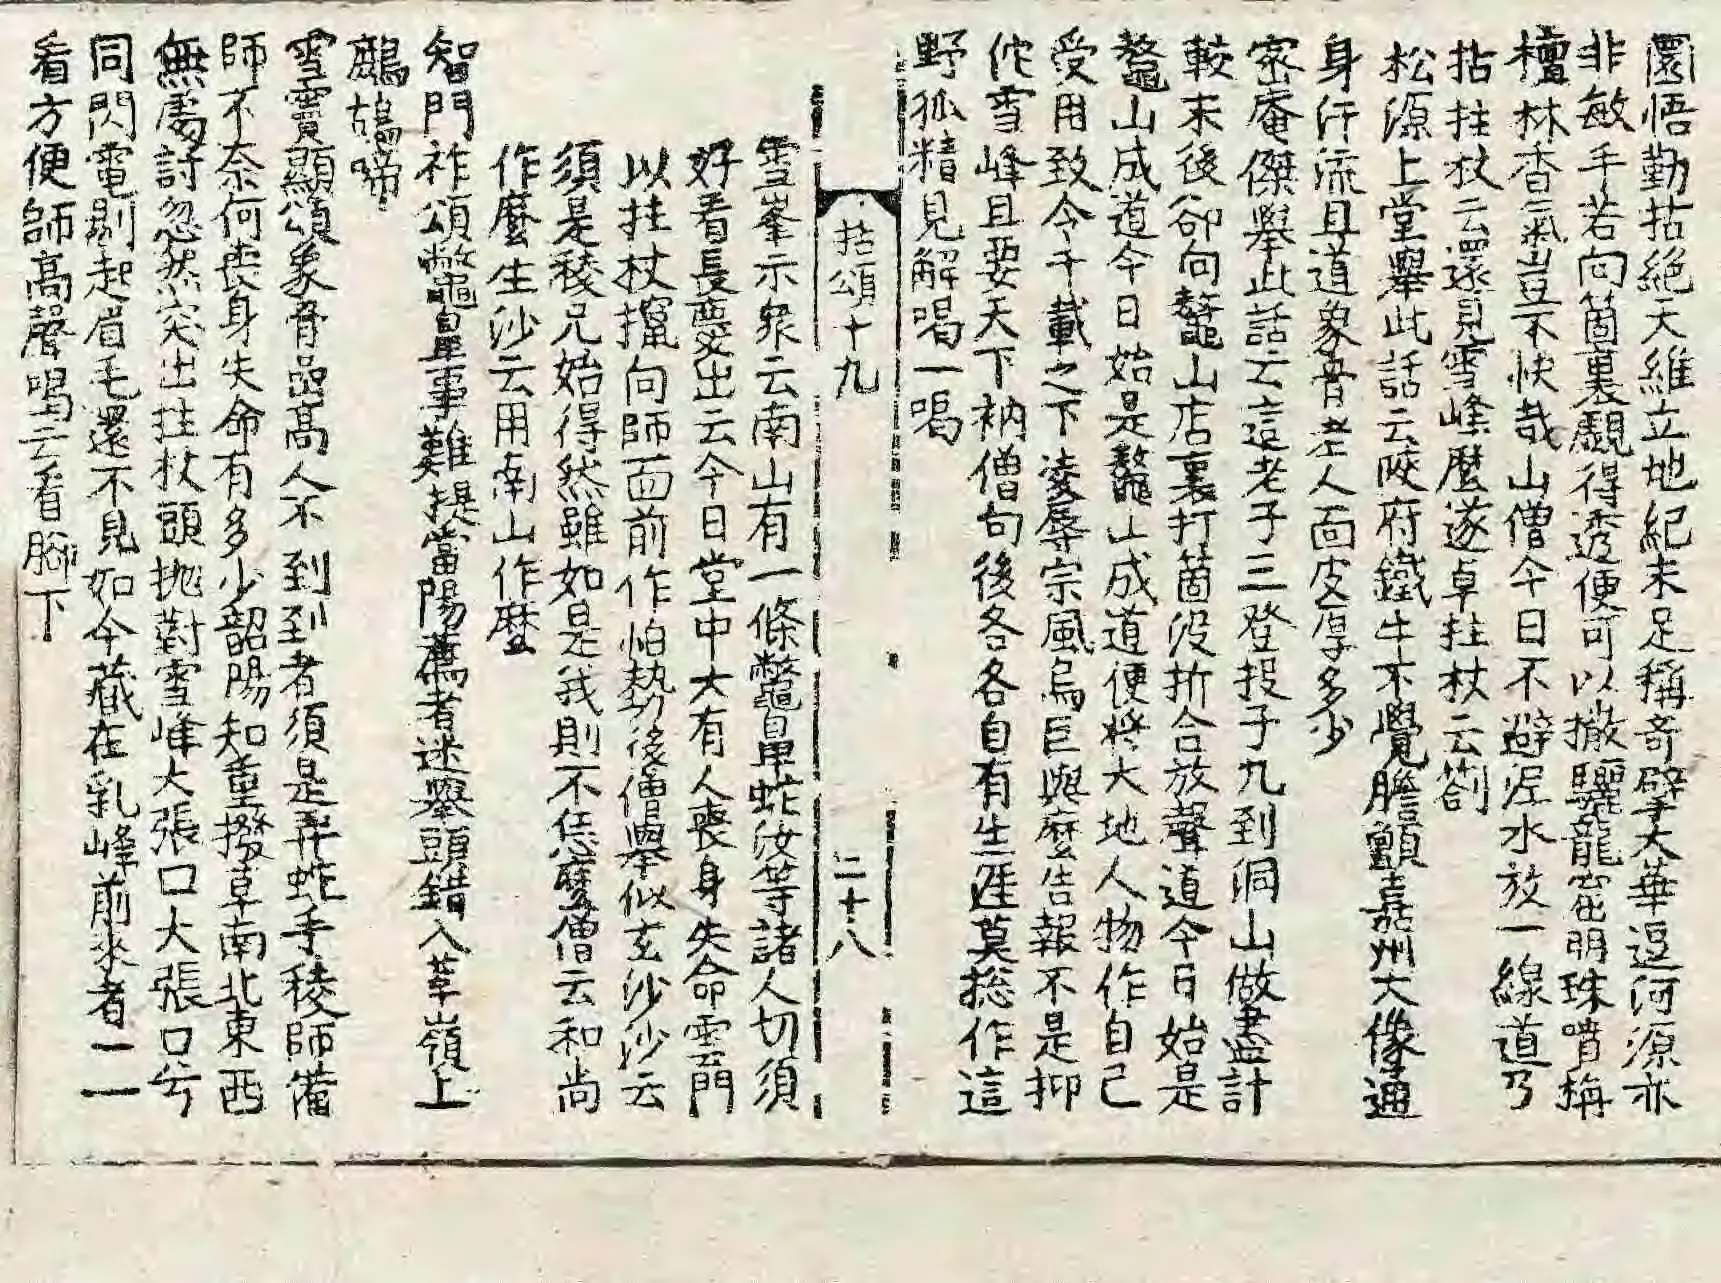 圜悟勤拈絕天維立地紀未足稱奇擘太華逗河源亦
非敏手若向箇裏覰得透便可以撤驪龍窟明珠噴栴
檀林香氣豈不快哉山僧今日不避泥水放一線道乃
拈拄杖云還見雪峰麼遂卓拄杖云劄
松源上堂擧此話云陝府鐵牛不覺膽顫嘉州大像通
身汗流且道象骨老人面皮厚多少
密庵傑擧此話云這老子三登投子九到洞山做盡計
較末後卻向鼇山店裏打箇没折合放聲道今日始是
鼇山成道今日始是鼇山成道便將大地人物作自己
受用致令千載之下凌辱宗風烏巨與麼告報不是抑
佗雪峰且要天下衲僧句後各各自有生涯莫捴作這
野狐精見解喝一喝
拈頌十九
二十八
雪峯示衆云南山有一條鼈鼻蛇汝等諸人切須
好看長慶出云今日堂中大有人喪身失命雲門
以拄杖攛向師面前作怕勢後僧擧似玄沙沙云
須是稜兄始得然雖如是我則不恁麼僧云和尚
作麼生沙云用南山作麼
智門祚頌鼈鼻事難提當陽薦者迷擧頭錯入莘嶺上
鷓鴣啼
雪竇顯頌象骨嵓高人不到到者須是弄蛇手稜師備
師不奈何喪身失命有多少韶陽知重撥草南北東西
無處討忽然突出拄杖頭抛對雪峰大張口大張口兮
同閃電剔起眉毛還不見如今藏在乳峰前來者一一
看方便師高聲喝云看脚下